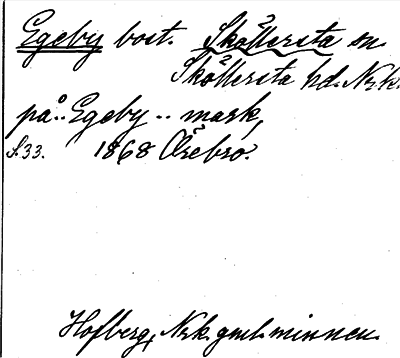 Egeby bost. Sköllersta sn.
Sköllersta hd. Nrk.
på.. Egeby .. mark,
S.33. 1868 Örebro.
Hofberg, Nrk. gml. minnen.